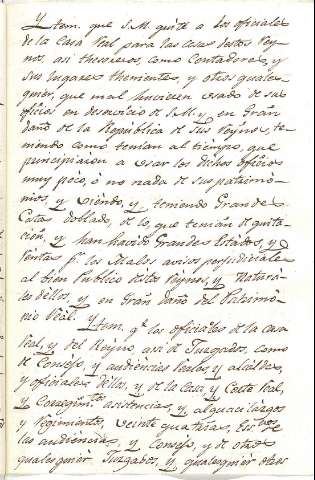 Ytem. que S.M. quite a los oficiales
de la Casa Real para las cosas destos Rey-
nos, asi thesoreros, como Contadores, y
sus lugares thenientes, y otros quales-
quier, que mal huvieren usado de sus
oficios en deservicio de S.M. y en Gran
daño de la Republica de sus Reynos, te-
niendo como tenian al tiempo, que
principiaron a usar los dichos oficios
muy poco, ó no nada de sus patrimo-
nios, y viendo, y teniendo Grandes
Casas doblado, de lo que tenian de quita-
ción, y han havido Grandes Estados, y
rentas p.r los Malos avisos perjudiciales
al bien Publico destos Reynos, y Natura-
les dellos, y en Gran daño del Patrimo-
nio Real. Ytem. q.e los oficiales de la casa
Real, y del Reyno asi de Juzgados, como
de Consejo, y audiencias Reales, y alcaldes,
y oficiales dellos, y de la Casa y Corte Real,
y Corregim.tos asistencias, y alguacilazgos
y Regimientos, veinte quatrias, Escrivos
de las audiencias, y Consejo, y de otros
qualesquier Juzgados, y qualesquier otros